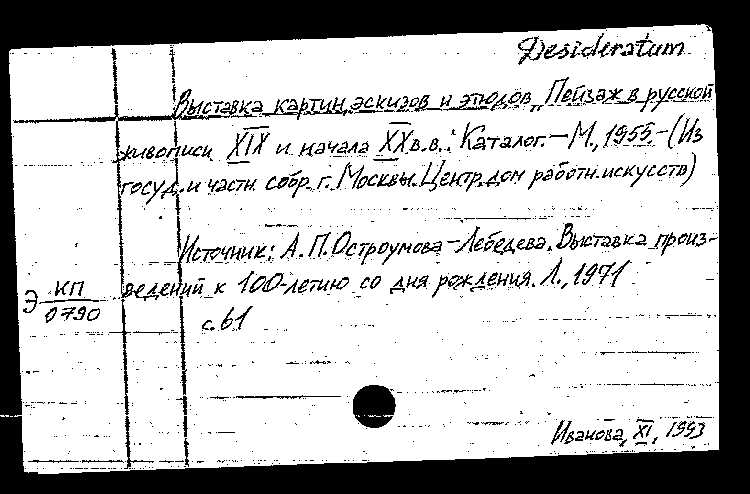 Desideratum
Выставка картин, эскизов и этюдов „Пейзаж в русской
живописи XIX и начала XX в.в.: Каталог. — М., 1955. — (Из
госуд. и частн. собр. г. Москвы. Центр. дом работн. искусств)
Источник: А. П. Остроумова-Лебедева. Выставка произ-
ведений к 100-летию со дня рождения. Л., 1971
с. 61
Э КП
0790
Иванова, XI, 1993